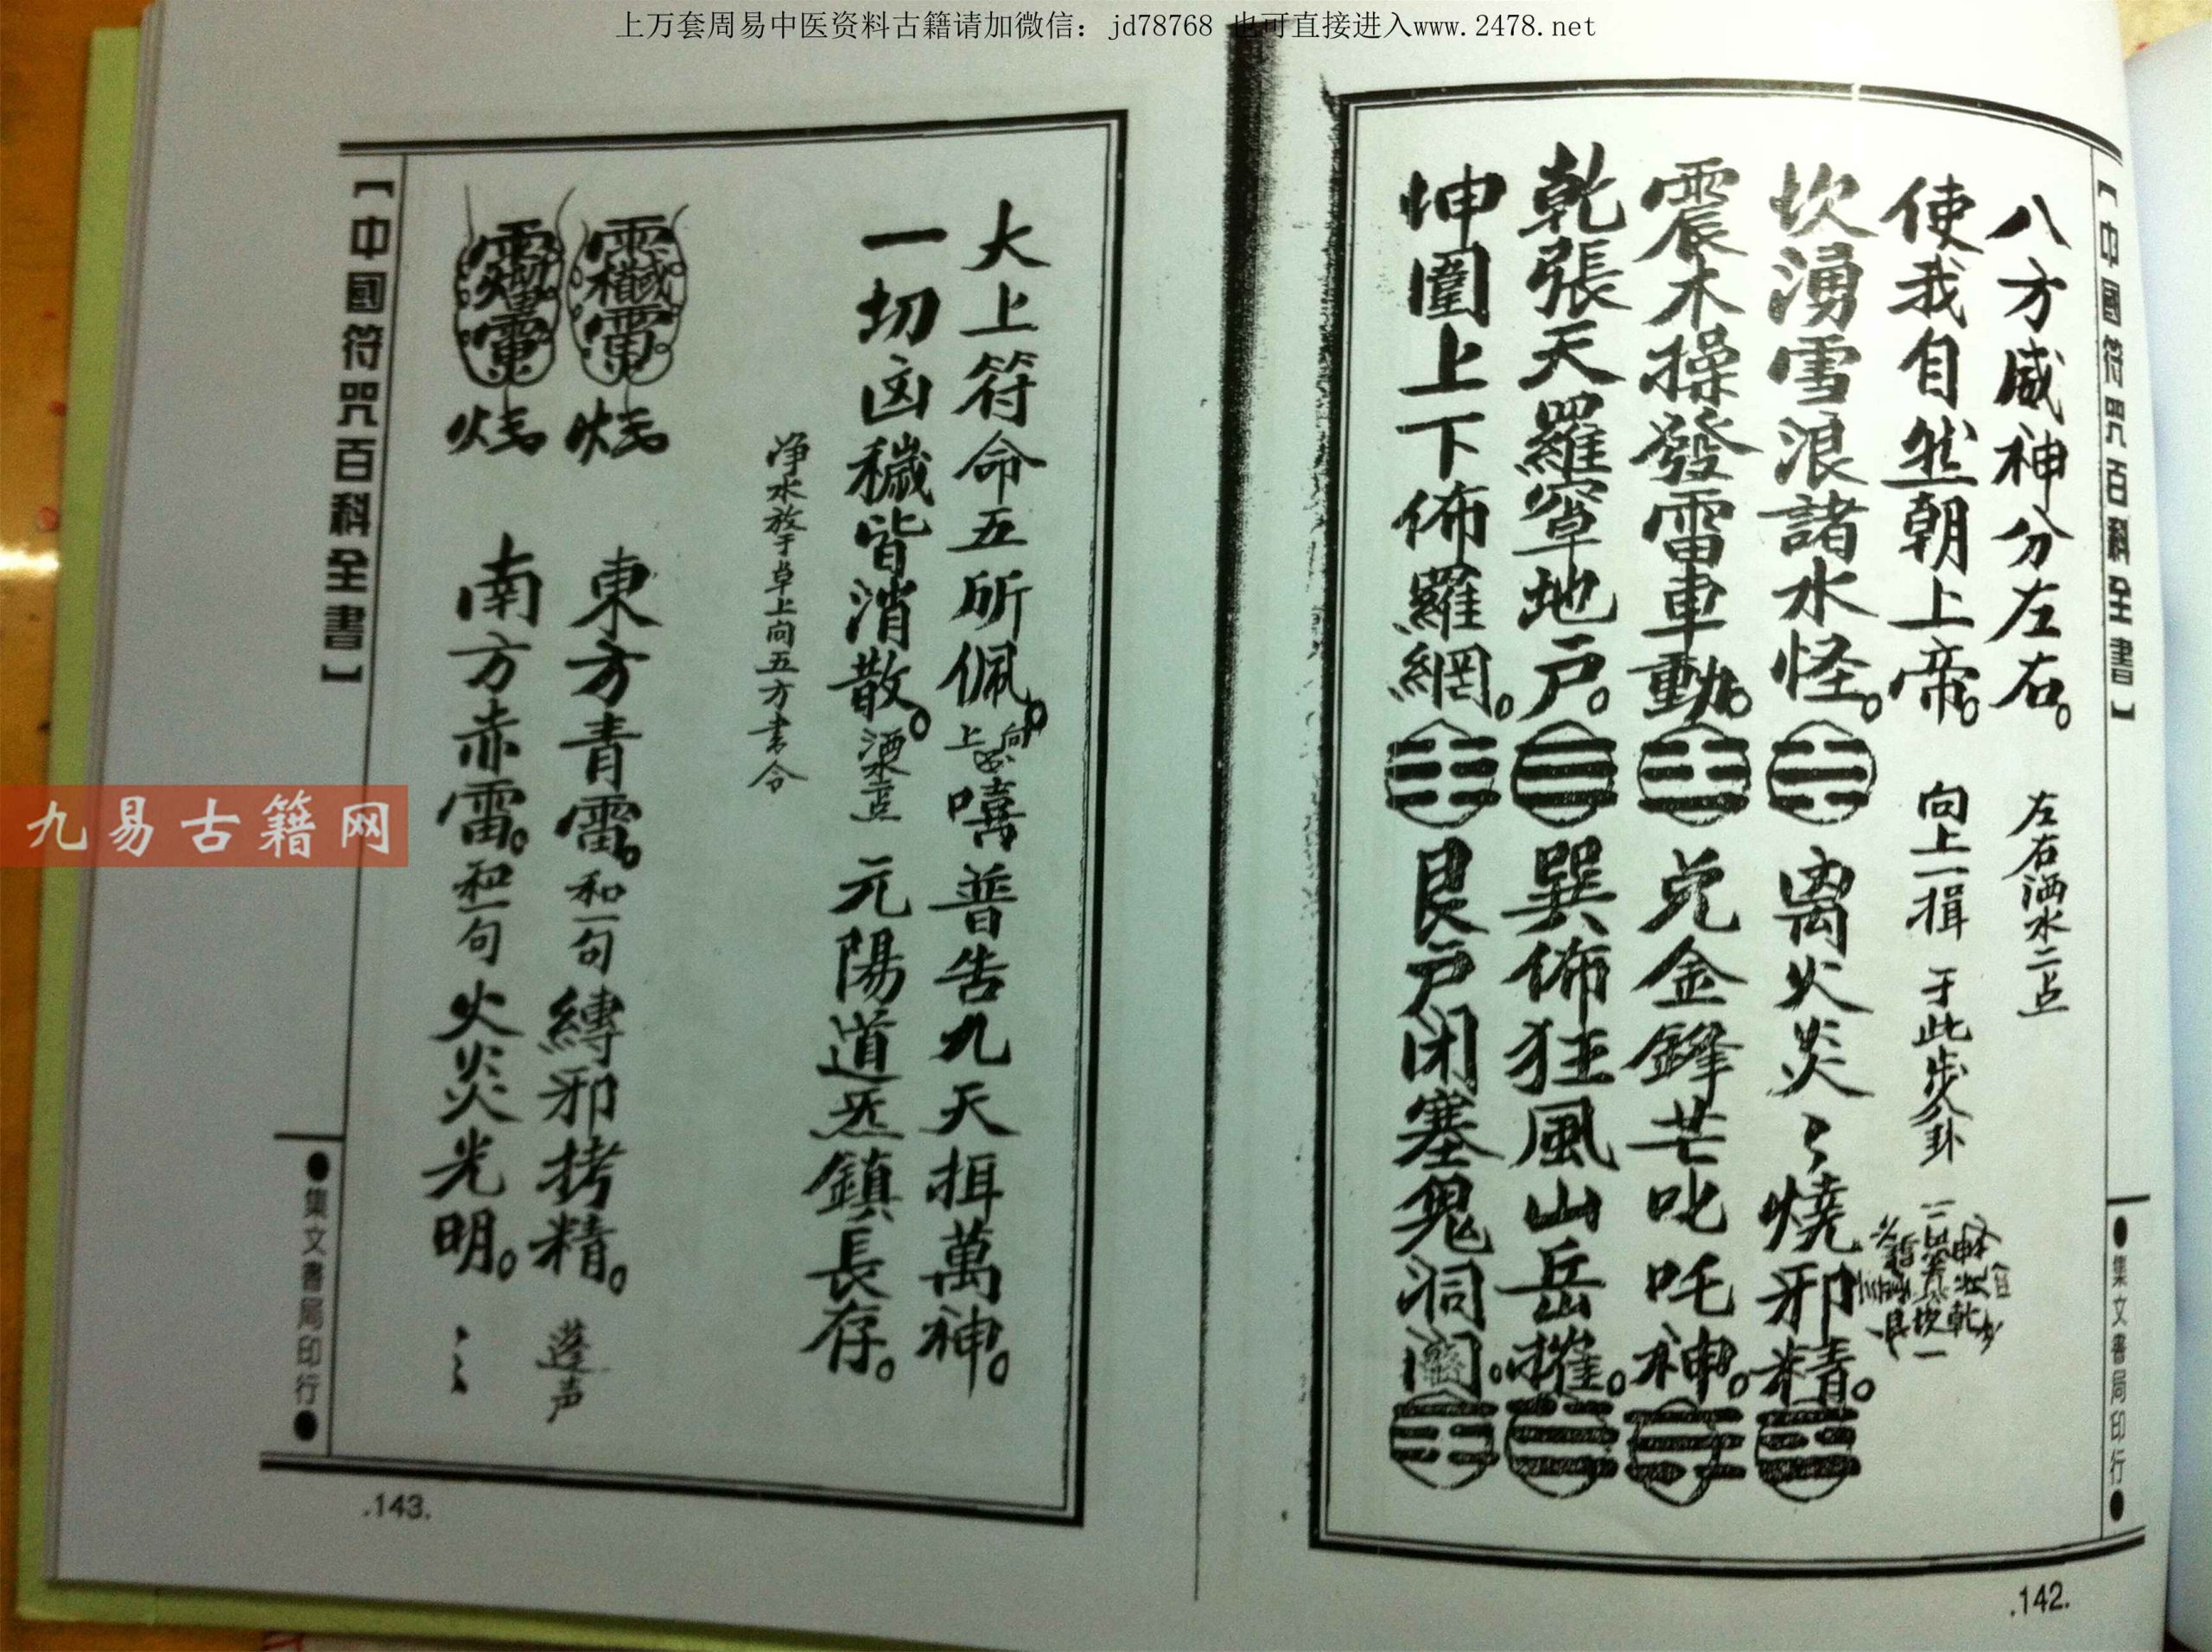 上万套周易中医资料古籍请加微信：jd78768 也可直接进入www.2478.net
【中國符咒百科全書】
●集文書局印行●
八方威神分左右。左右洒水二点
使我自然朝上帝。向上一揖 于此步八卦
坎湧雪浪諸水怪。離火炎〻燒邪精。
震木操發雷車動。兑金鋒芒叱吒神。
乾張天羅窂地户。巽佈狂風山岳摧。
坤圍上下佈羅網。艮户闭塞鬼洞
.142.
大上符命五所佩。向上噀普告九天揖萬神。
一切凶穢皆消散。洒水 元陽道炁鎮長存。
净水放于卓上向五方書令
烧 東方青雷。和一句縛邪拷精。逢声
烧 南方赤雷。和一句火炎光明。〻
【中國符咒百科全書】
●集文書局印行●
.143.
九易古籍网